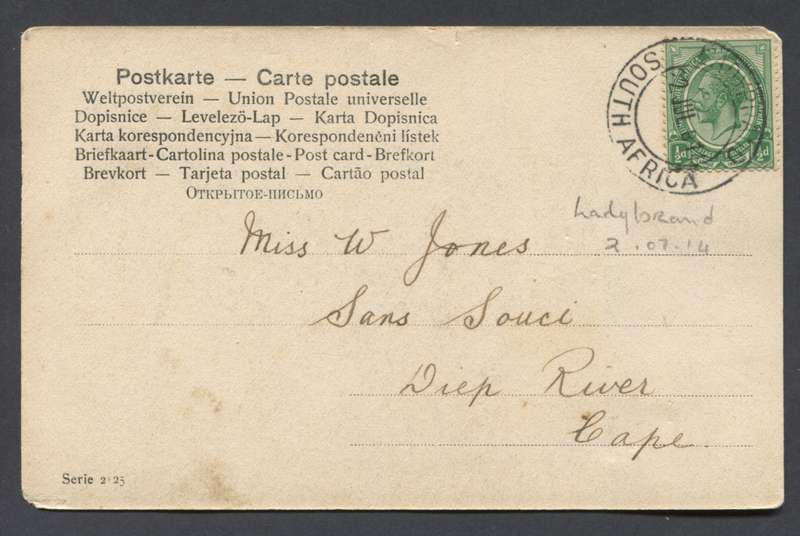 Postkarte — Carte postale
Weltpostverein — Union Postale universelle
Dopisnice — Levelező-Lap — Karta Dopisnica
Karta korespondencyjna — Korespondenčni lístek
Briefkaart - Cartolina postale - Post card - Brefkort
Brevkort — Tarjeta postal — Cartão postal
Открытое-письмо
SOUTH AFRICA
½d ½d
Ladybrand
2.07.14
Miss W Jones
Sans Souci
Diep River
Cape
Serie 2125